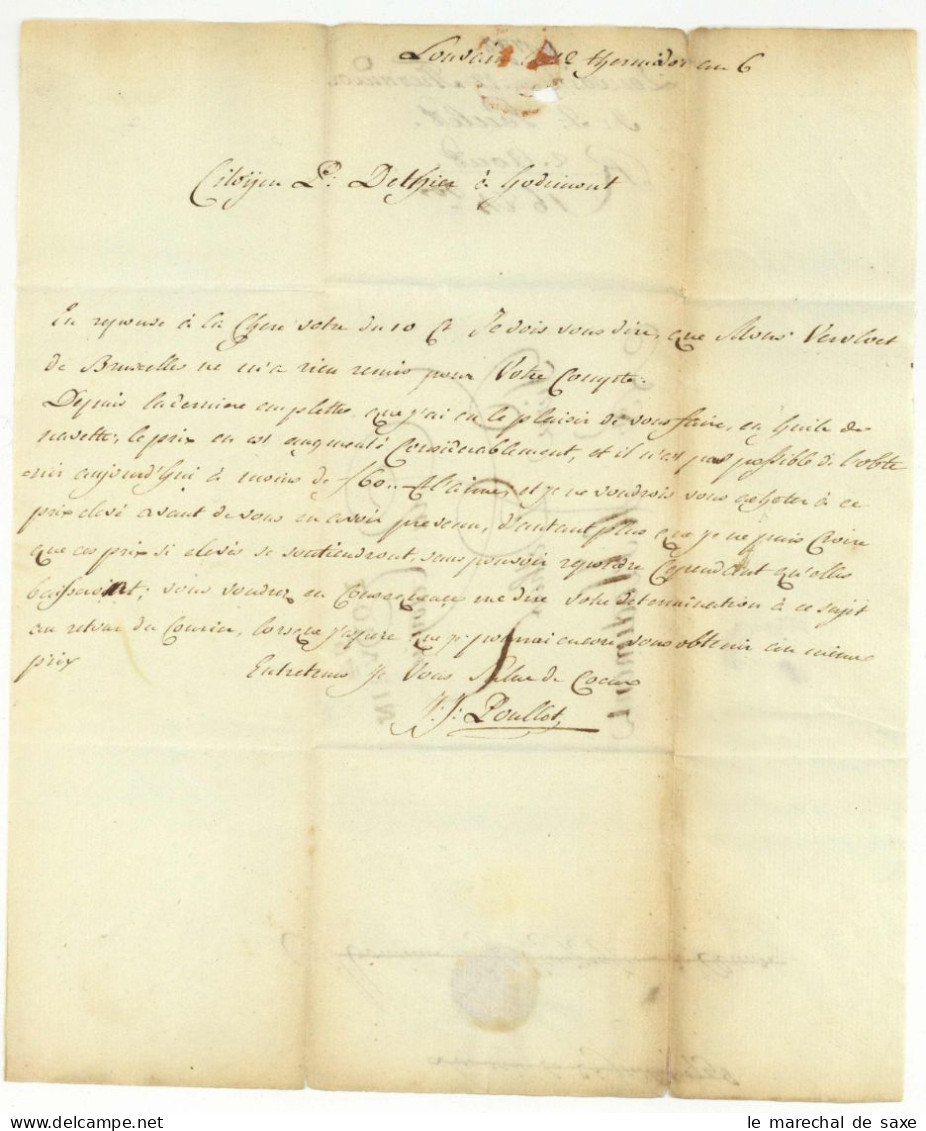 Louvain 12 thermidor an 6
Citoyen P: Dethier à hodimont
En reponse à la Chere votre du 10 Ct Je dois vous dire, que Mons Vervloet
de Bruxelles ne m'a rien remis pour Votre Compte:
Depuis la derniere emplette, que j'ai eu le plaisir de vous faire, en huile de
navette, le prix en est augmenté Considerablement, et il n'est pas possible de l'obte
=nir aujourd'hui à moins de f60 .. l'aime, et je ne voudrois vous acheter à ce
prix elevé avant de vous en avoir prevenu, d'autant plus que je ne puis Croire
que ces prix si elevés se soutiendront, sans pouvoir repondre Cependant qu'elles
baisseront; vous voudrez en Consequence me dire votre determination à ce sujet
au retour du Courier, lorsque j'espere que je pourrai encore vous obtenir au même
prix Entretems Je Vous Salue de Coeur
J: J: Poullot,
le marechal de saxe